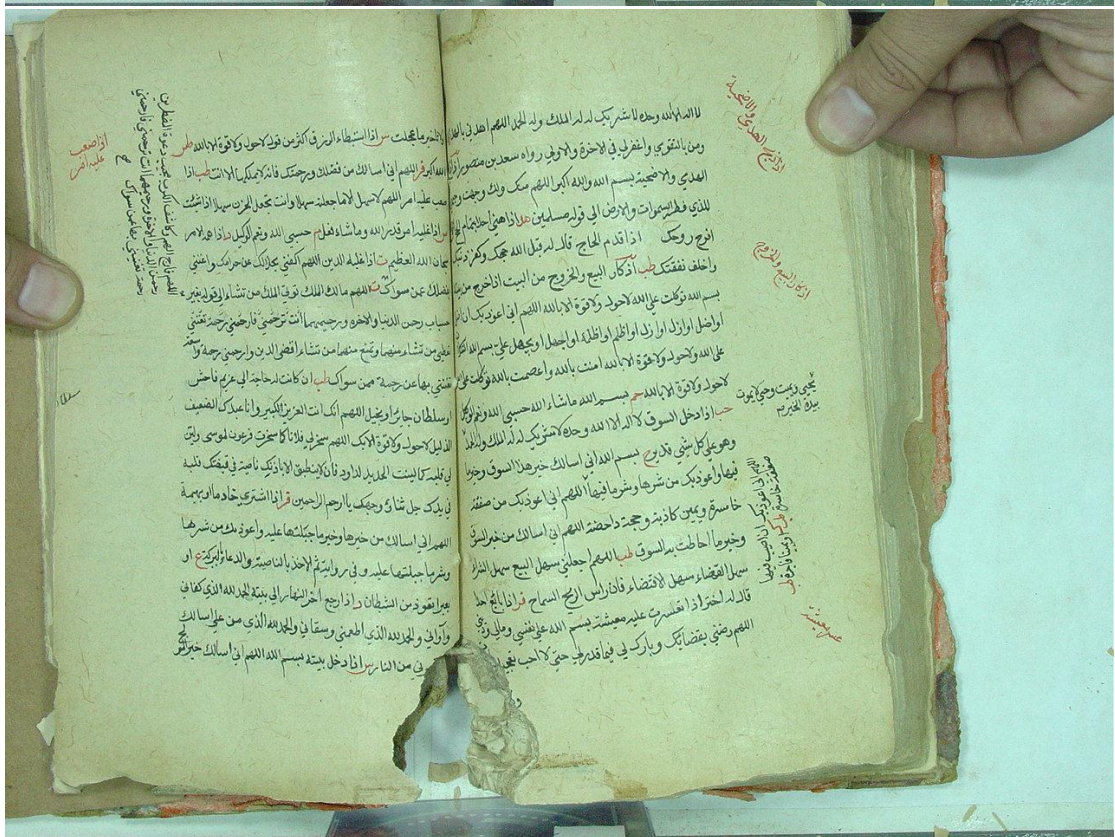 لا اله الا الله وحده لا شريك له له الملك وله الحمد اللهم اهدني بالهدى
ومن بالتقوي واغفر لي في الاخرة والاولي رواه سعيد بن منصور
الهدي والاضحية بسم الله والله اكبر اللهم منك ولك وجهت
للذي فطر السموات والارض الي قوله مسلمين
افرج روحك اذا قدم الحاج قال له قبل الله حجك وكفر ذنبك
واخلف نفقتك طب اذكار البيع والخروج من البيت اذا خرج من
بسم الله توكلت علي الله لاحول ولا قوة الا بالله اللهم اني اعوذ بك ان
او اضل او ازل او ازل او اظلم او اظلم او اجهل او يجهل علي بسم الله
علي الله ولاحول ولا قوة الا بالله امنت بالله واعتصمت بالله توكلت علي
لاحول ولا قوة الا بالله بسم الله ماشاء الله حسبي الله ونعم الوكيل
اذا دخل السوق لا اله الا الله وحده لا شريك له له الملك وله الحمد
وهو علي كل شيء قدير بسم الله اني اسالك خير هذا السوق وخير ما
فيها واعوذ بك من شرها وشر ما فيها اللهم اني اعوذ بك من صفقة
خاسرة ويمين كاذبة وحجة داحضة اللهم اني اسالك من خير السوق
وخير ما احاطت به السوق طب اللهم اجعلني سهل البيع سهل الشراء
سهل القضاء سهل الاقتضاء فان راس الربح السماح
قال له اختر اذا تعسرت عليه معيشته بسم الله علي نفسي ومالي وديني
اللهم رضني بقضائك وبارك لي فيما قدر لي حتي لا احب
اذا ذبح الهدي والاضحية
اذكار البيع والخروج
يحيي ويميت وحي لا يموت
بيده الخير
اللهم اني اعوذ بك ان اصيب فيها
صفقة خاسرة او يمينا فاجرة
عسر معيشته
ما عجلت اذا استبطاء الرزق اكثر من قول لاحول ولا قوة الا بالله
اللهم اني اسالك من فضلك ورحمتك فانه لا يملكها الا انت طب اذا
صعب عليه امر اللهم لا سهل الا ما جعلته سهلا وانت تجعل الحزن سهلا اذا شئت
اذا غلبه امر قدر الله وما شاء فعل حسبي الله ونعم الوكيل اذا اهمه الامر
سبحان الله العظيم اذا غلبه الدين اللهم اكفني بحلالك عن حرامك واغنني
بفضلك عمن سواك اللهم مالك الملك تؤتي الملك من تشاء الي قوله بغير
حساب رحمن الدنيا والاخرة ورحيمهما انت ترحمني فارحمني رحمة تغنني
تعطي من تشاء منهما وتمنع منهما من تشاء اقض الدين وارحمني رحمة
تغنني بها عن رحمة من سواك طب ان كانت له حاجة الي غريم فاحش
او سلطان جائر او بخيل اللهم انك انت العزيز الكبير وانا عبدك الضعيف
الذليل لاحول ولا قوة الا بك اللهم سخر لي فلانا كما سخرت فرعون لموسى ولين
لي قلبه كما لينت الحديد لداود فانه لا ينطق الا باذنك ناصيته في قبضتك قلبه
في يدك جل ثناؤ وجهك يا ارحم الراحمين اذا اشتري خادما او بهيمة
اللهم اني اسالك من خيرها وخير ما جبلتها عليه واعوذ بك من شرها
وشر ما جبلتها عليه وفي رواية ثم الاخذ بالناصية والدعاء بالبركة
بعيرا يتعوذ من الشيطان اذا رجع اخر النهار الي بيته الحمد لله الذي كفاني
وآواني والحمد لله الذي اطعمني وسقاني والحمد لله الذي من علي اسالك
من النار اذا دخل بيته بسم الله اللهم اني اسالك خير
اذا صعب
عليه امر
اللهم فارج الهم وكاشف الكرب مجيب دعوة المضطرين
رحمن الدنيا والاخرة ورحيمهما انت ترحمني فارحمني
رحمة تغنني بها عمن سواك